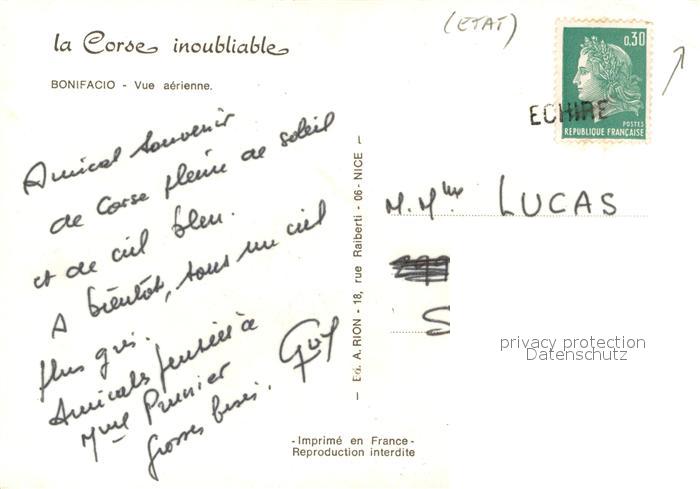 la Corse inoubliable
BONIFACIO - Vue aérienne.
Amical souvenir
de Corse pleine de soleil
et de ciel bleu.
A bientôt, sous un ciel
plus gris.
Amicales pensées à
Mme Prunier
Grosses bises. Guy
- Ed. A. RION - 18, rue Raiberti - 06 - NICE -
- Imprimé en France -
Reproduction interdite
(ETAT)
0,30
POSTES
REPUBLIQUE FRANÇAISE
ECHIRE
M. Mme LUCAS
S
privacy protection
Datenschutz